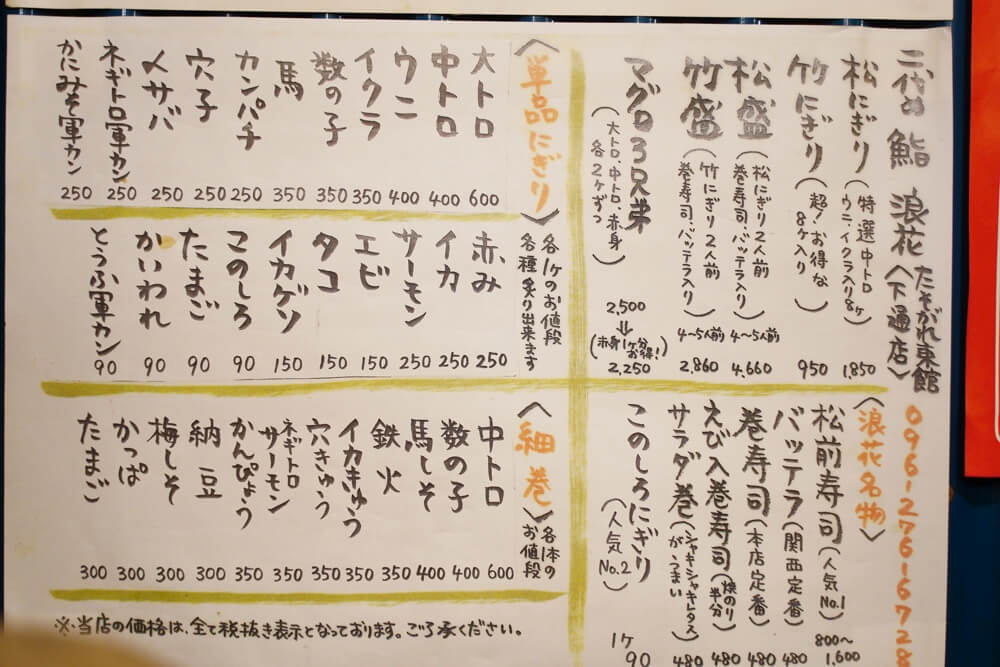 二代め 鮨 浪花 たそがれ東館〈下通店〉
096-276-6728
松にぎり(特選中トロ ウニ、イクラ入り8ヶ) 1,850
竹にぎり(超!お得な 8ヶ入り) 950
松盛(松にぎり2人前 巻寿司、バッテラ入り) 4~5人前 4,660
竹盛(竹にぎり2人前 巻寿司、バッテラ入り) 4~5人前 2,860
マグロ3兄弟(大トロ、中トロ、赤身 各2ヶずつ) 2,500 ⇓ (赤身1ヶ分お得!) 2,250
〈浪花名物〉
松前寿司(人気No.1) 800~1,600
バッテラ(関西定番) 480
巻寿司(本店定番) 480
えび入巻寿司(焼のり半分) 480
サラダ巻(シャキシャキレタスがうまい) 480
このしろにぎり(人気No.2) 1ヶ 90
〈単品にぎり〉各1ケのお値段 各種炙り出来ます
大トロ 600
中トロ 400
ウニ 400
イクラ 350
数の子 350
馬 350
カンパチ 250
穴子 250
〆サバ 250
ネギトロ軍カン 250
かにみそ軍カン 250
赤み 250
イカ 250
サーモン 250
エビ 150
タコ 150
イカゲソ 150
このしろ 90
たまご 90
かいわれ 90
とうふ軍カン 90
〈細巻〉各1本のお値段
中トロ 600
数の子 400
馬しそ 400
鉄火 350
イカきゅう 350
穴きゅう 350
ネギトロサーモン 350
かんぴょう 350
納豆 300
梅しそ 300
かっぱ 300
たまご 300
※当店の価格は、全て税抜き表示となっております。ご了承ください。